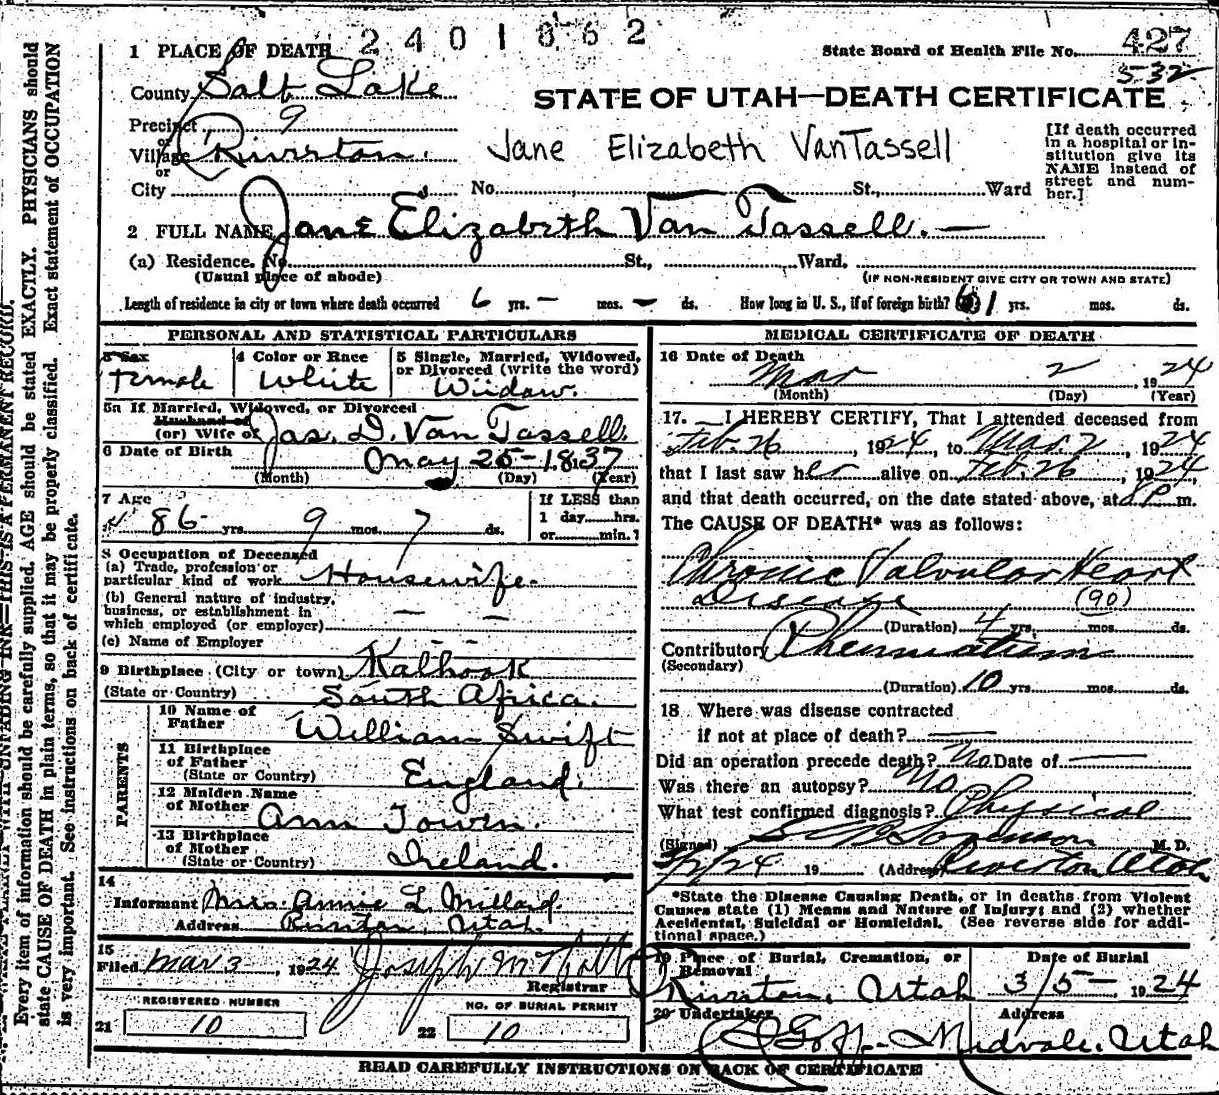 2401062
1 PLACE OF DEATH
State Board of Health File No. 427
532
County Salt Lake
STATE OF UTAH—DEATH CERTIFICATE
Precinct 9
or
Village Riverton.
Jane Elizabeth VanTassell
[If death occurred in a hospital or institution give its NAME instead of street and number.]
or
City No. St., Ward
2 FULL NAME Jane Elizabeth Van Tassell. —
(a) Residence. No. St., Ward.
(Usual place of abode) (IF NON-RESIDENT GIVE CITY OR TOWN AND STATE)
Length of residence in city or town where death occurred 6 yrs. — mos. — ds. How long in U. S., if of foreign birth? 61 yrs. mos. ds.
PERSONAL AND STATISTICAL PARTICULARS
3 Sex
Female
4 Color or Race
White
5 Single, Married, Widowed,
or Divorced (write the word)
Widow.
5a If Married, Widowed, or Divorced
Husband of
(or) Wife of Jas. D. Van Tassell.
6 Date of Birth
May 25-1837
(Month) (Day) (Year)
7 Age
86 yrs. 9 mos. 7 ds.
If LESS than
1 day......hrs.
or......min.?
8 Occupation of Deceased
(a) Trade, profession or
particular kind of work Housewife.
(b) General nature of industry,
business, or establishment in
which employed (or employer) —
(c) Name of Employer —
9 Birthplace (City or town) Kalhook
(State or Country) South Africa.
PARENTS
10 Name of
Father William Swift
11 Birthplace
of Father
(State or Country) England.
12 Maiden Name
of Mother Ann Towen.
13 Birthplace
of Mother
(State or Country) Ireland.
14
Informant Mrs. Annie L. Millard.
Address Riverton, Utah.
15
Filed Mar 3, 1924 Joseph M
Registrar
REGISTERED NUMBER
21 10
NO. OF BURIAL PERMIT
22 10
MEDICAL CERTIFICATE OF DEATH
16 Date of Death
Mar 2, 1924
(Month) (Day) (Year)
17. I HEREBY CERTIFY, That I attended deceased from
Feb. 26, 1924, to Mar. 2, 1924
that I last saw her alive on Feb. 26, 1924,
and that death occurred, on the date stated above, at 8 P m.
The CAUSE OF DEATH* was as follows:
Chronic Valvular Heart
Disease (90)
(Duration) 4 yrs. mos. ds.
Contributory Rheumatism
(Secondary)
(Duration) 10 yrs. mos. ds.
18 Where was disease contracted
if not at place of death? —
Did an operation precede death? No. Date of —
Was there an autopsy? No.
What test confirmed diagnosis? Physical
(Signed) Sorenson M. D.
3/2/24 19 (Address) Riverton Utah
*State the Disease Causing Death, or in deaths from Violent
Causes state (1) Means and Nature of Injury; and (2) whether
Accidental, Suicidal or Homicidal. (See reverse side for additional space.)
19 Place of Burial, Cremation, or
Removal
Riverton, Utah
Date of Burial
3/5-, 1924
20 Undertaker
Goff
Address
Midvale. Utah
READ CAREFULLY INSTRUCTIONS ON BACK OF CERTIFICATE
WRITE PLAINLY WITH UNFADING INK—THIS IS A PERMANENT RECORD.
Every item of information should be carefully supplied. AGE should be stated EXACTLY. PHYSICIANS should
state CAUSE OF DEATH in plain terms, so that it may be properly classified. Exact statement of OCCUPATION
is very important. See instructions on back of certificate.